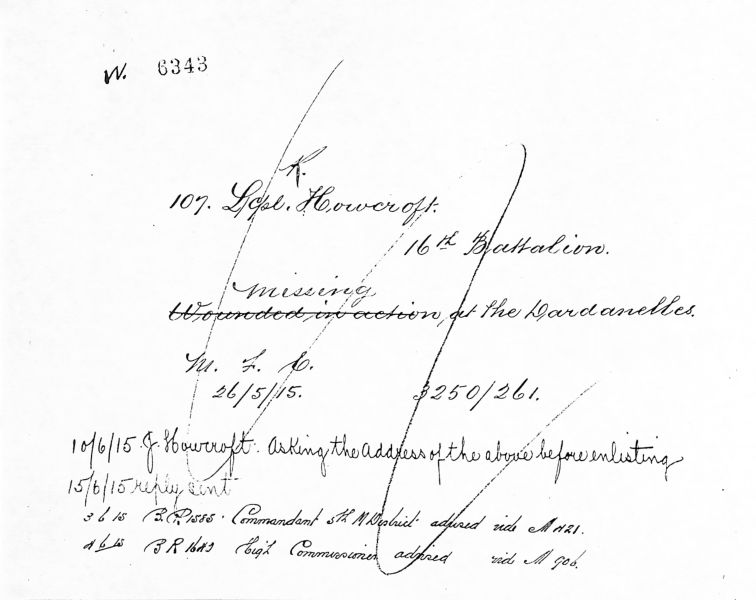 W. 6343
K.
107. Lcpl. Howcroft.
16th Battalion.
missing
Wounded, in action, at the Dardanelles.
M. F. C.
26/5/15. 3250/261.
10/6/15 J. Howcroft. Asking the address of the above before enlisting
15/6/15 reply sent
3 6 15 B.P. 1585. Commandant 5th M District advised vide M 421.
4 6 15 B R 1649 High Commissioner advised vide M 906.